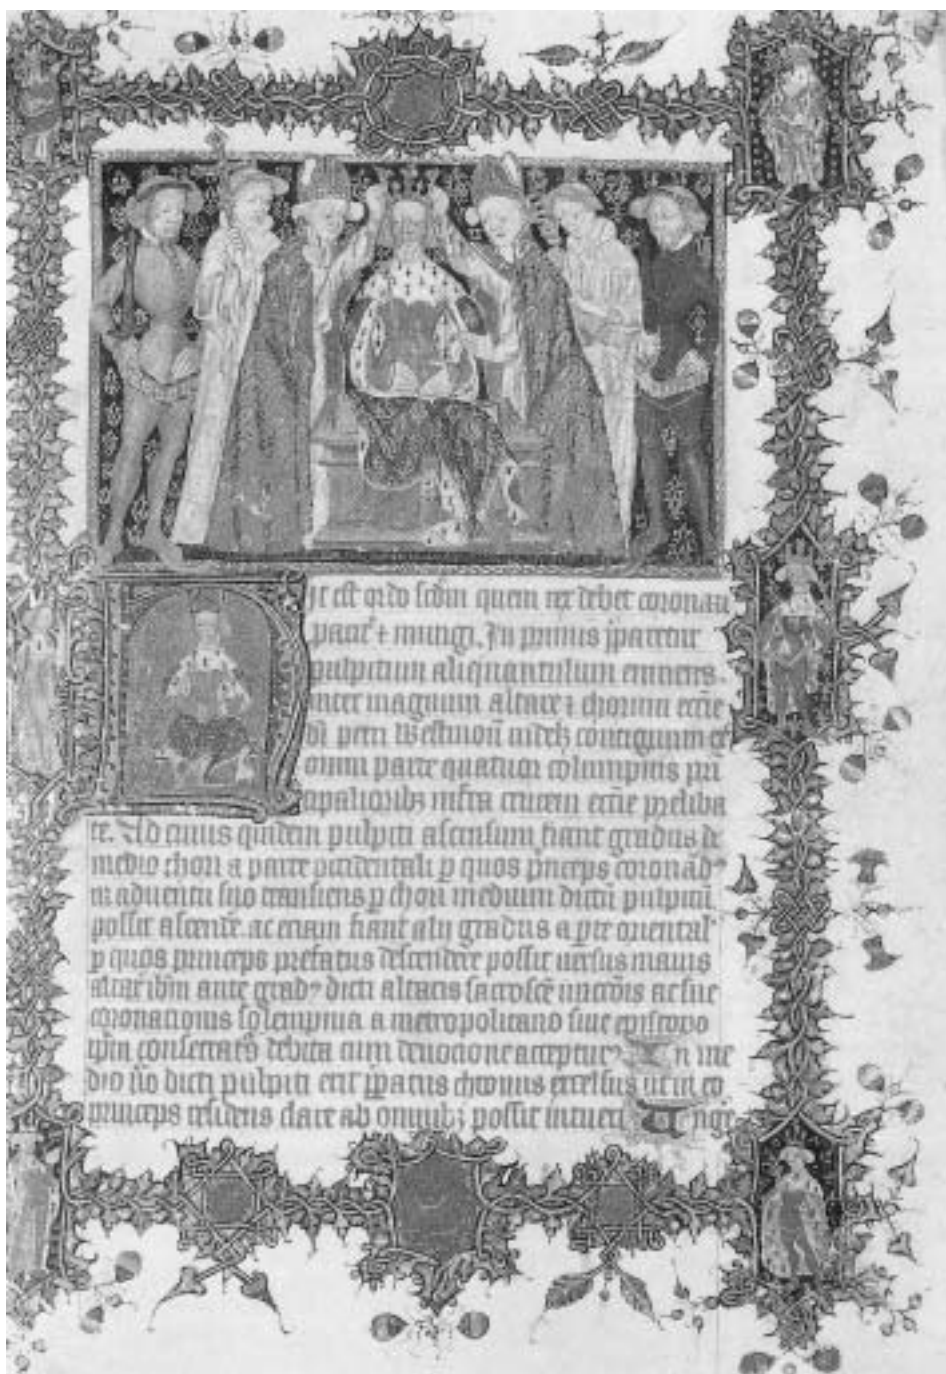 ic est ordo scdm quem rex debet coronari
pariter & inungi. In primis pparetur
pulpitum aliquantulum eminens
inter magnum altare & chorum eccie
bi petri Westmon contiguum ex
omni parte quatuor columpnis pri
cipalioribz infra crucem eccie preliba
te. Ad cuius quidem pulpiti ascensum fiant gradus de
medio chori a parte occidentali p quos princeps coronand
in adventu suo transiens p chori medium dictum pulpitum
possit ascendere. ac eciam fiant alii gradus a parte orientali
p quos princeps prefatus descendere possit versus maius
altare ibm ante grad dicti altaris sacrosce unctonis ac sue
coronationis solempnia a metropolitano sive episcopo
ipm consecrat debita cum devocione accepturus In me
dio vo dicti pulpiti erit ppatus thronus excelsus ut in eo
princeps residens clare ab omnibz possit intueri